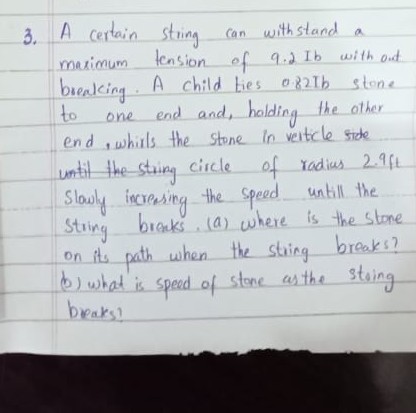 3. A certain string can withstand a
maximum tension of 9.2 Ib with out
breaking. A child ties 0.82Ib stone
to one end and, holding the other
end, whirls the stone in verticle side
until the string circle of radius 2.9ft
Slowly increasing the speed untill the
string breaks. (a) where is the stone
on its path when the string breaks?
(b) what is speed of stone as the string
breaks?